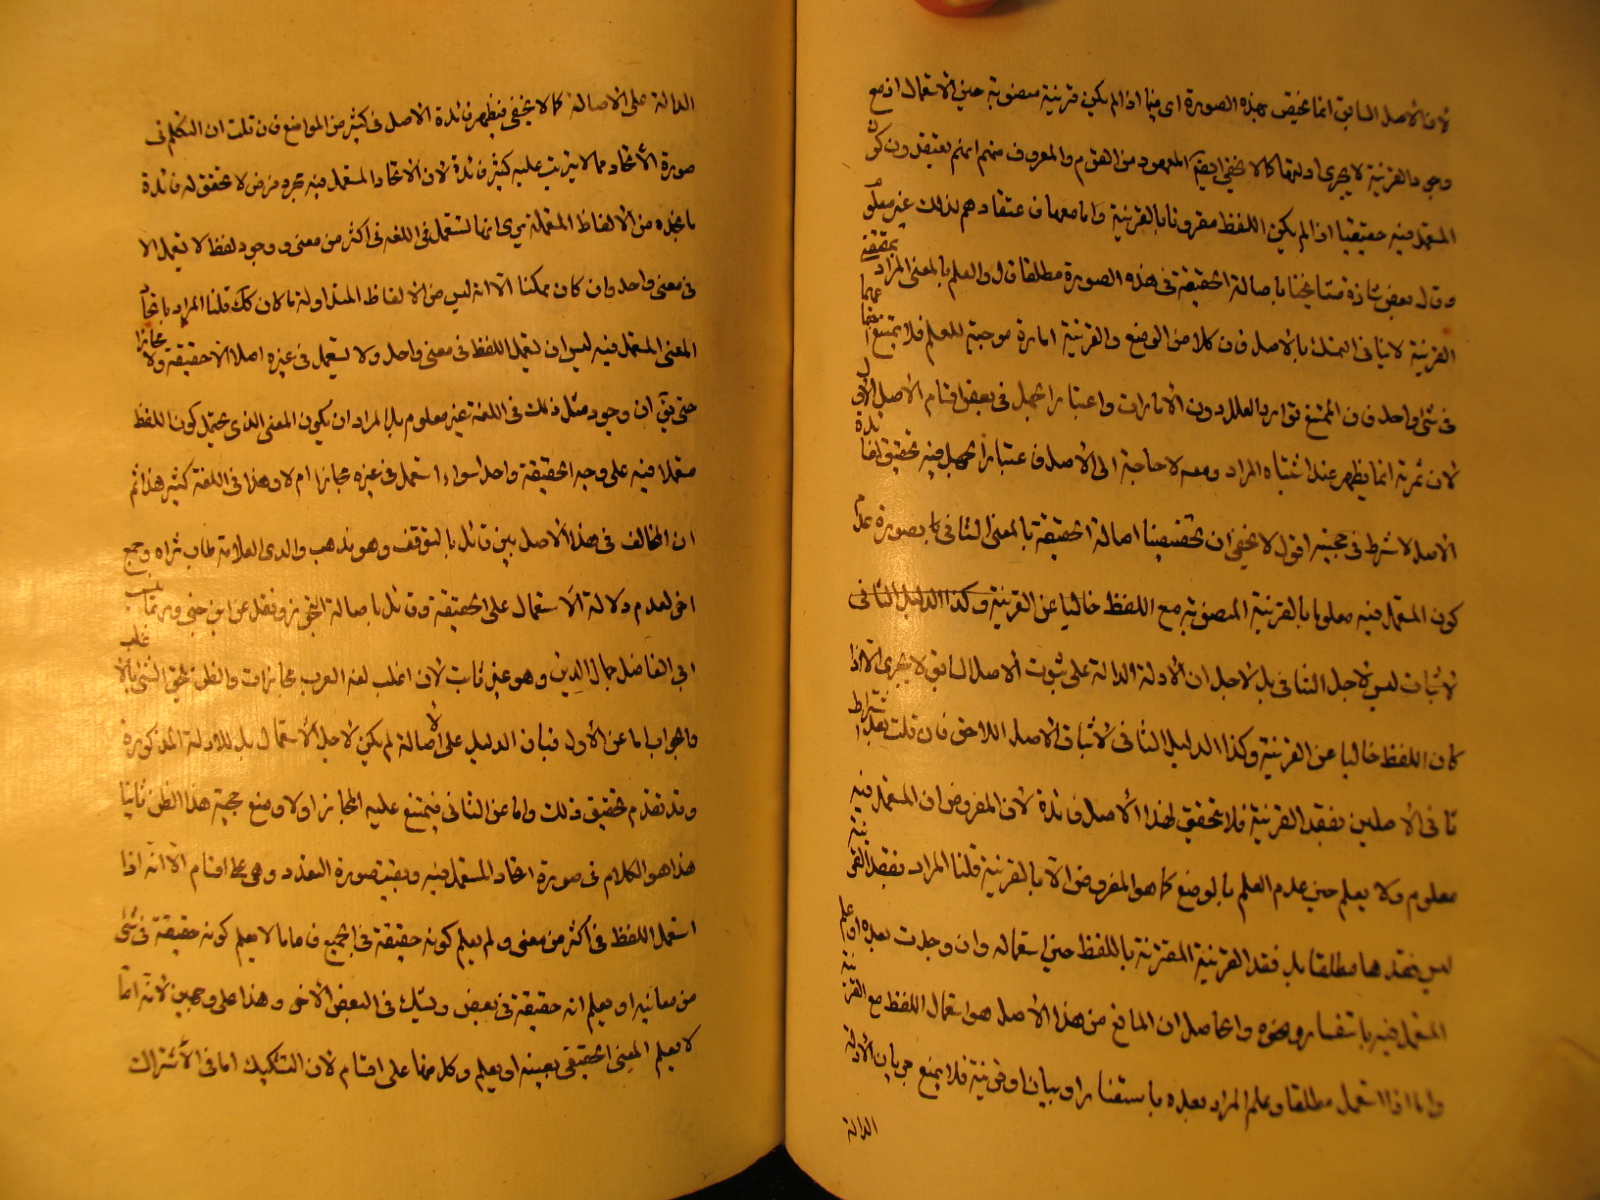 لان الاصل السابق انما يختص بهذه الصورة اى فيما اذا لم يكن قرينة منصوبة حين الاستعمال اذ مع
وجود القرينة لا يجرى ادلتها كما لا يخفى المعهود من القوم والمعروف منهم انهم يعتقدون كون
المستعمل فيه حقيقيا اذا لم يكن اللفظ مقرونا بالقرينة واما معها فاعتقادهم بذلك غير معلوم
وقال بعض باصالة الحقيقة فى هذه الصورة مطلقا قال والعلم بالمعنى المراد بمعونة
القرينة لا ينافى التمسك بالاصل فان كلا من الوضع والقرينة امارة موجبة للعلم فلا يمتنع اجتماعهما
فى شئ واحد فان الممتنع توارد العلل دون الامارات واعتبار الجهل فى بعض اقسام الاصل
لان ثمرته انما يظهر عند اشتباه المراد ومعه لا حاجة الى الاصل فاعتبار الجهل فيه لتحقق فائدة
الاصل لا شرط فى حجيته اقول لا يخفى ان اصالة الحقيقة بالمعنى الثانى بصورة عدم
كون المستعمل فيه معلوما بالقرينة المنصوبة مع اللفظ خاليا عن القرينة وكذا الدليل الثانى
لاثبات ليس لاجل الثنافى بل لاجل ان الادلة الدالة على ثبوت الاصل السابق لا يجرى الا اذا
كان اللفظ خاليا عن القرينة وكذا الدليل الثانى لاثبات الاصل اللاحق فان قلت بعد اشتراط
فى الاصلين بفقد القرينة فلا يتحقق لهذا الاصل فائدة لان المفروض ان المستعمل فيه
معلوم ولا يعلم حين عدم العلم بالوضع كما هو المفروض الا بالقرينة قلنا المراد بفقد القرينة
ليس فقدها مطلقا بل فقد القرينة المقترنة باللفظ حين استعماله وان وجدت بعده او علم
المستعمل فيه باستفسار ونحوه والحاصل ان المانع من هذا الاصل هو استعمال اللفظ مع القرينة
واما اذا استعمل مطلقا وعلم المراد بعده باستفسار او بيان او قرينة فلا يمنع جريان الادلة
الدالة
الدالة على الاصالة كما لا يخفى فيظهر فائدة الاصل فى كثير من المواضع فان قلت ان التكلم فى
صورة الاتحاد مما لا يترتب عليه كثير فائدة لان الاتحاد المستعمل فيه مجرد فرض لا يتحقق له فائدة
ما نجده من الالفاظ المستعملة نرى انها تستعمل فى اللغة فى اكثر من معنى ووجود لفظ لا يستعمل الا
فى معنى واحد وان كان ممكنا الا انه ليس من الالفاظ المتداولة ما كان كك قلنا المراد باتحاد
المعنى المستعمل فيه ليس ان يستعمل اللفظ فى معنى واحد ولا يستعمل فى غيره اصلا لا حقيقة ولا مجازا
حتى يق ان وجود مثل ذلك فى اللغة غير معلوم بل المراد ان يكون المعنى الذى يحتمل كون اللفظ
مستعملا فيه على وجه الحقيقة واحدا سواء استعمل فى غيره مجازا ام لا وهذا فى اللغة كثير هذا ثم
ان المخالف فى هذا الاصل بين قائل بالتوقف وهو مذهب والدى العلامة طاب ثراه وجمع
اخر لعدم دلالة الاستعمال على الحقيقة وقائل باصالة التجوز ونقل عن ابن جنى وربما نسب
الى الفاضل جمال الدين وهو غير ثابت لان اغلب لغة العرب مجازات والظن يلحق الشئ بالاغلب
والجواب اما عن الاول فبان الدليل على الاصالة لم يكن لاجل الاستعمال بل للادلة المذكورة
وقد تقدم تحقيق ذلك واما عن الثانى فيمتنع غلبة المجاز اولا ومنع حجية هذا الظن ثانيا
هذا هو الكلام فى صورة اتحاد المستعمل فيه وبقيت صورة التعدد وهى على اقسام الا انه اذا
استعمل اللفظ فى اكثر من معنى ولم يعلم كونه حقيقة فى الجميع فاما ما لا يعلم كونه حقيقة فى شئ
من معانيه او يعلم انه حقيقة فى بعض ويشك فى البعض الاخر وهذا على وجهين لانه اما
لا يعلم المعنى الحقيقى بعينه او يعلم وكل منها على اقسام لان التشكيك اما فى الاشتراك